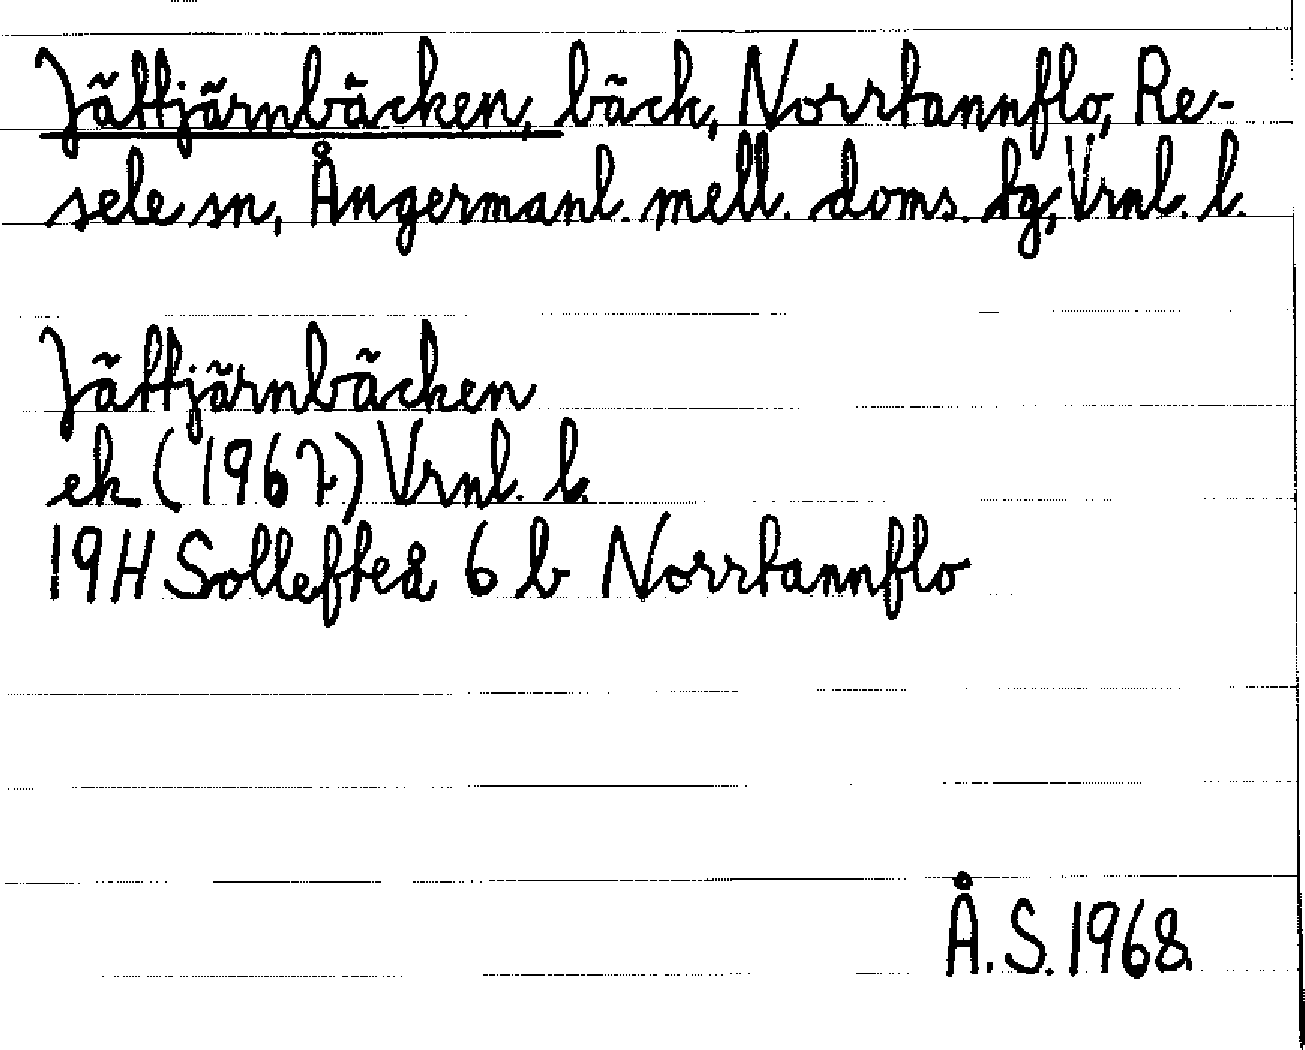 Jättjärnbäcken, bäck, Norrtannflo, Re-
sele sn, Ångermanl. mell. doms. tg, Vrnl. l.
Jättjärnbäcken
ek (1967) Vrnl. l.
19H Sollefteå 6 b Norrtannflo
Å.S. 1968.